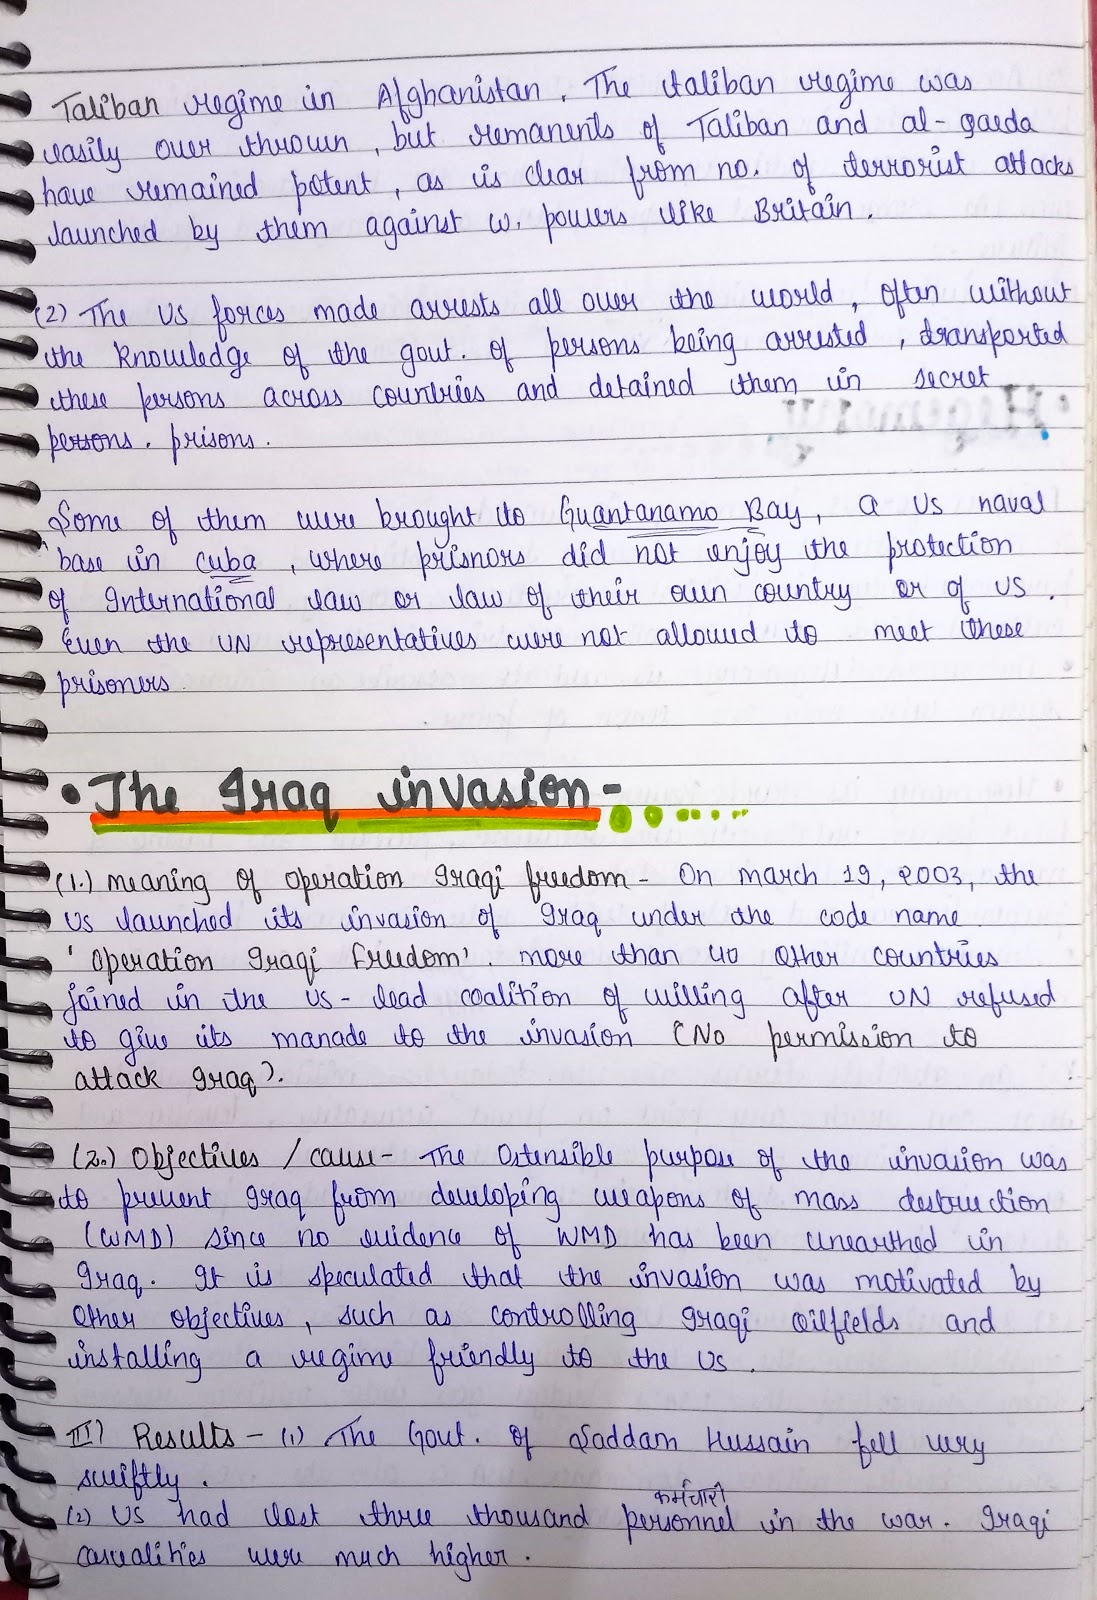 Taliban regime in Afghanistan. The taliban regime was
easily over thrown, but remanents of Taliban and al-qaeda
have remained potent, as is clear from no. of terrorist attacks
launched by them against w. powers like Britain.
(2) The US forces made arrests all over the world, often without
the knowledge of the govt. of persons being arrested, transported
these persons across countries and detained them in secret
persons. prisons.
Some of them were brought to Guantanamo Bay, a US naval
base in Cuba, where prisnors did not enjoy the protection
of International law or law of their own country or of US.
Even the UN representatives were not allowed to meet these
prisoners.
• The Iraq invasion-
(1.) meaning of operation Iraqi freedom - On march 19, 2003, the
US launched its invasion of Iraq under the code name
'Operation Iraqi freedom'. more than 40 other countries
joined in the US-lead coalition of willing after UN refused
to give its manade to the invasion (No permission to
attack Iraq).
(2.) Objectives / cause- The Ostensible purpose of the invasion was
to prevent Iraq from developing weapons of mass destruction
(WMD) since no evidence of WMD has been unearthed in
Iraq. It is speculated that the invasion was motivated by
other objectives, such as controlling Iraqi oilfields and
installing a regime friendly to the US.
III) Results - (1) The Govt. of Saddam Hussain fell very
swiftly.
कर्मचारी
(2) US had lost three thousand personnel in the war. Iraqi
casualities were much higher.